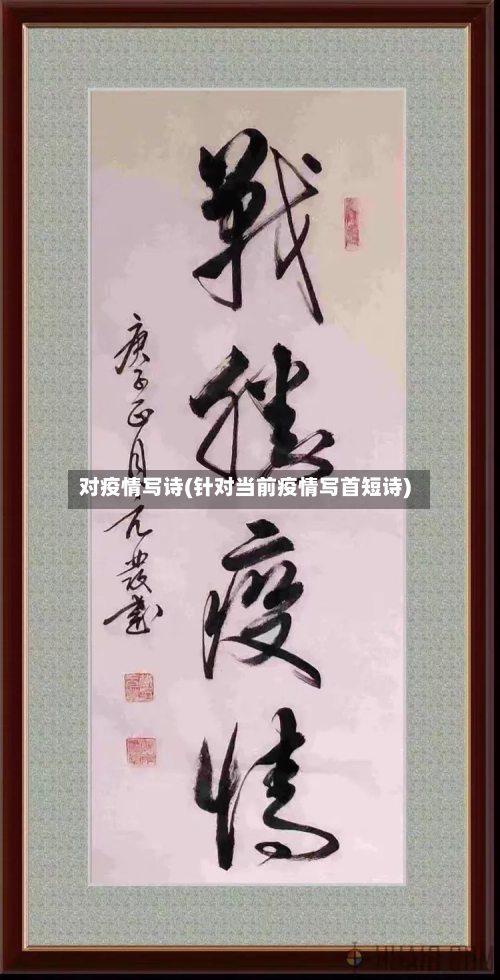 戰勝疫情
庚子正月元發書
对疫情写诗(针对当前疫情写首短诗)